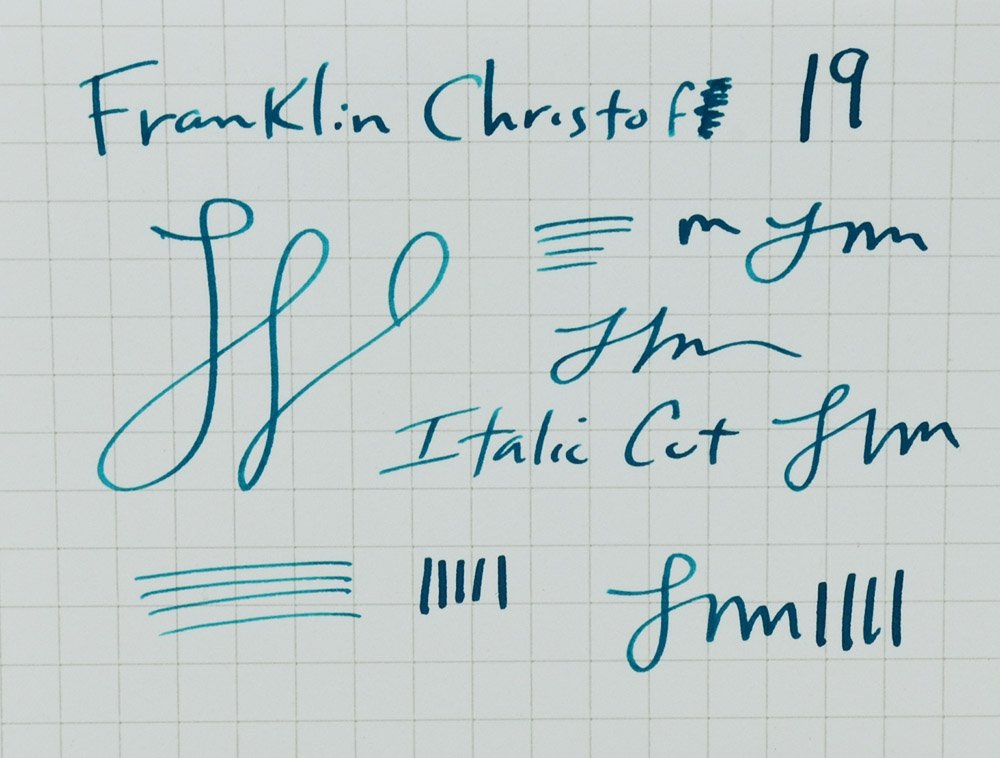 Franklin Christof 19
Italic Cut